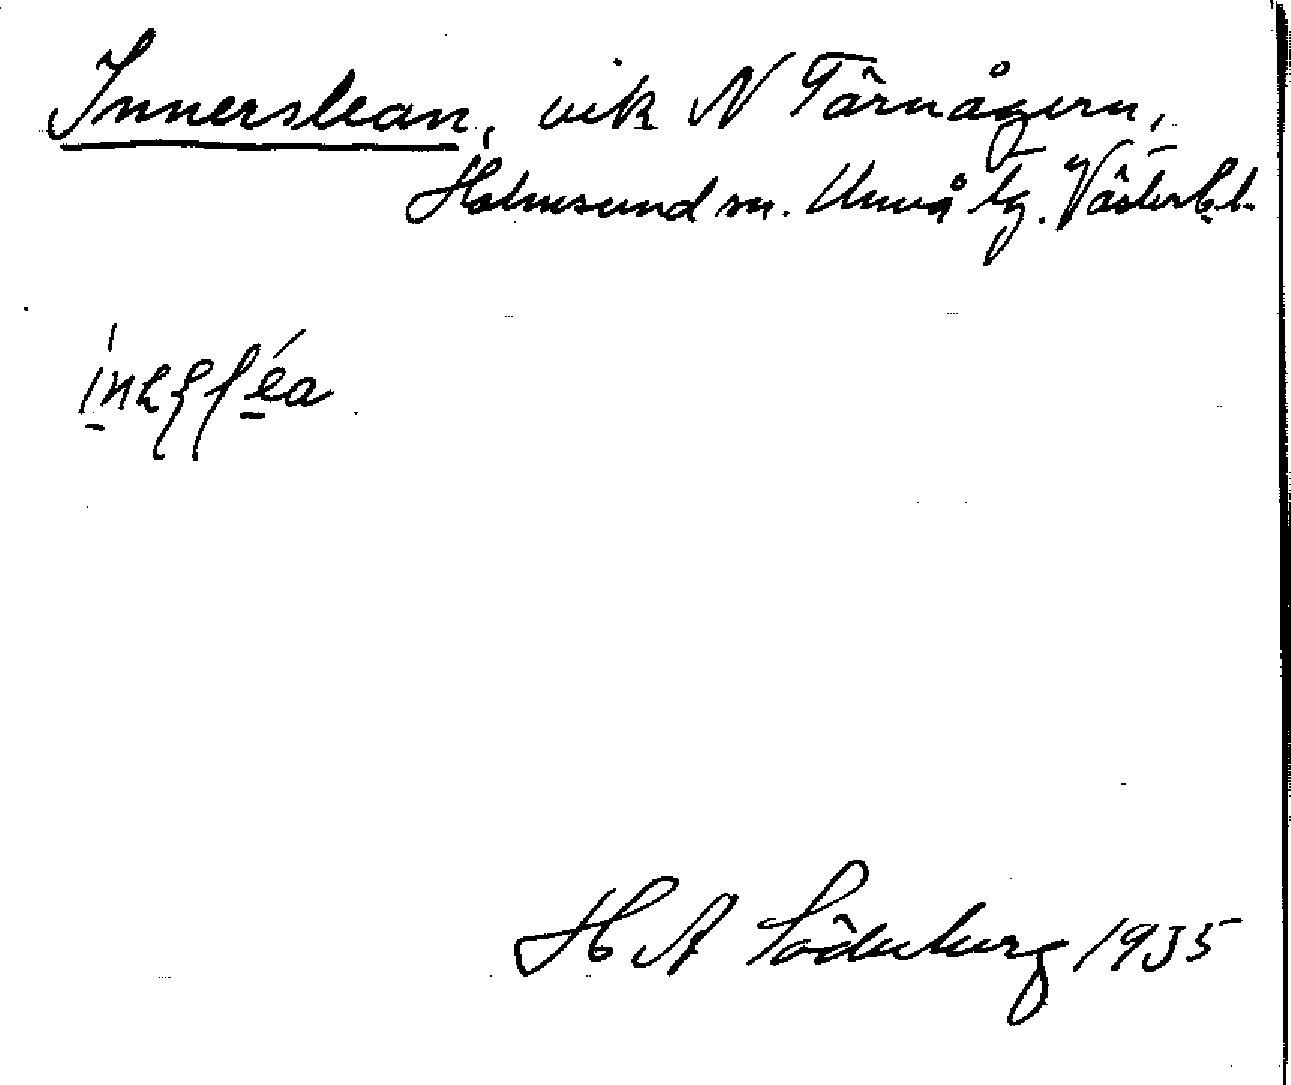 Innerslean, vik N Tärnögern,
Holmsund sn. Umeå tg. Västerb.l.
H A Söderberg 1935